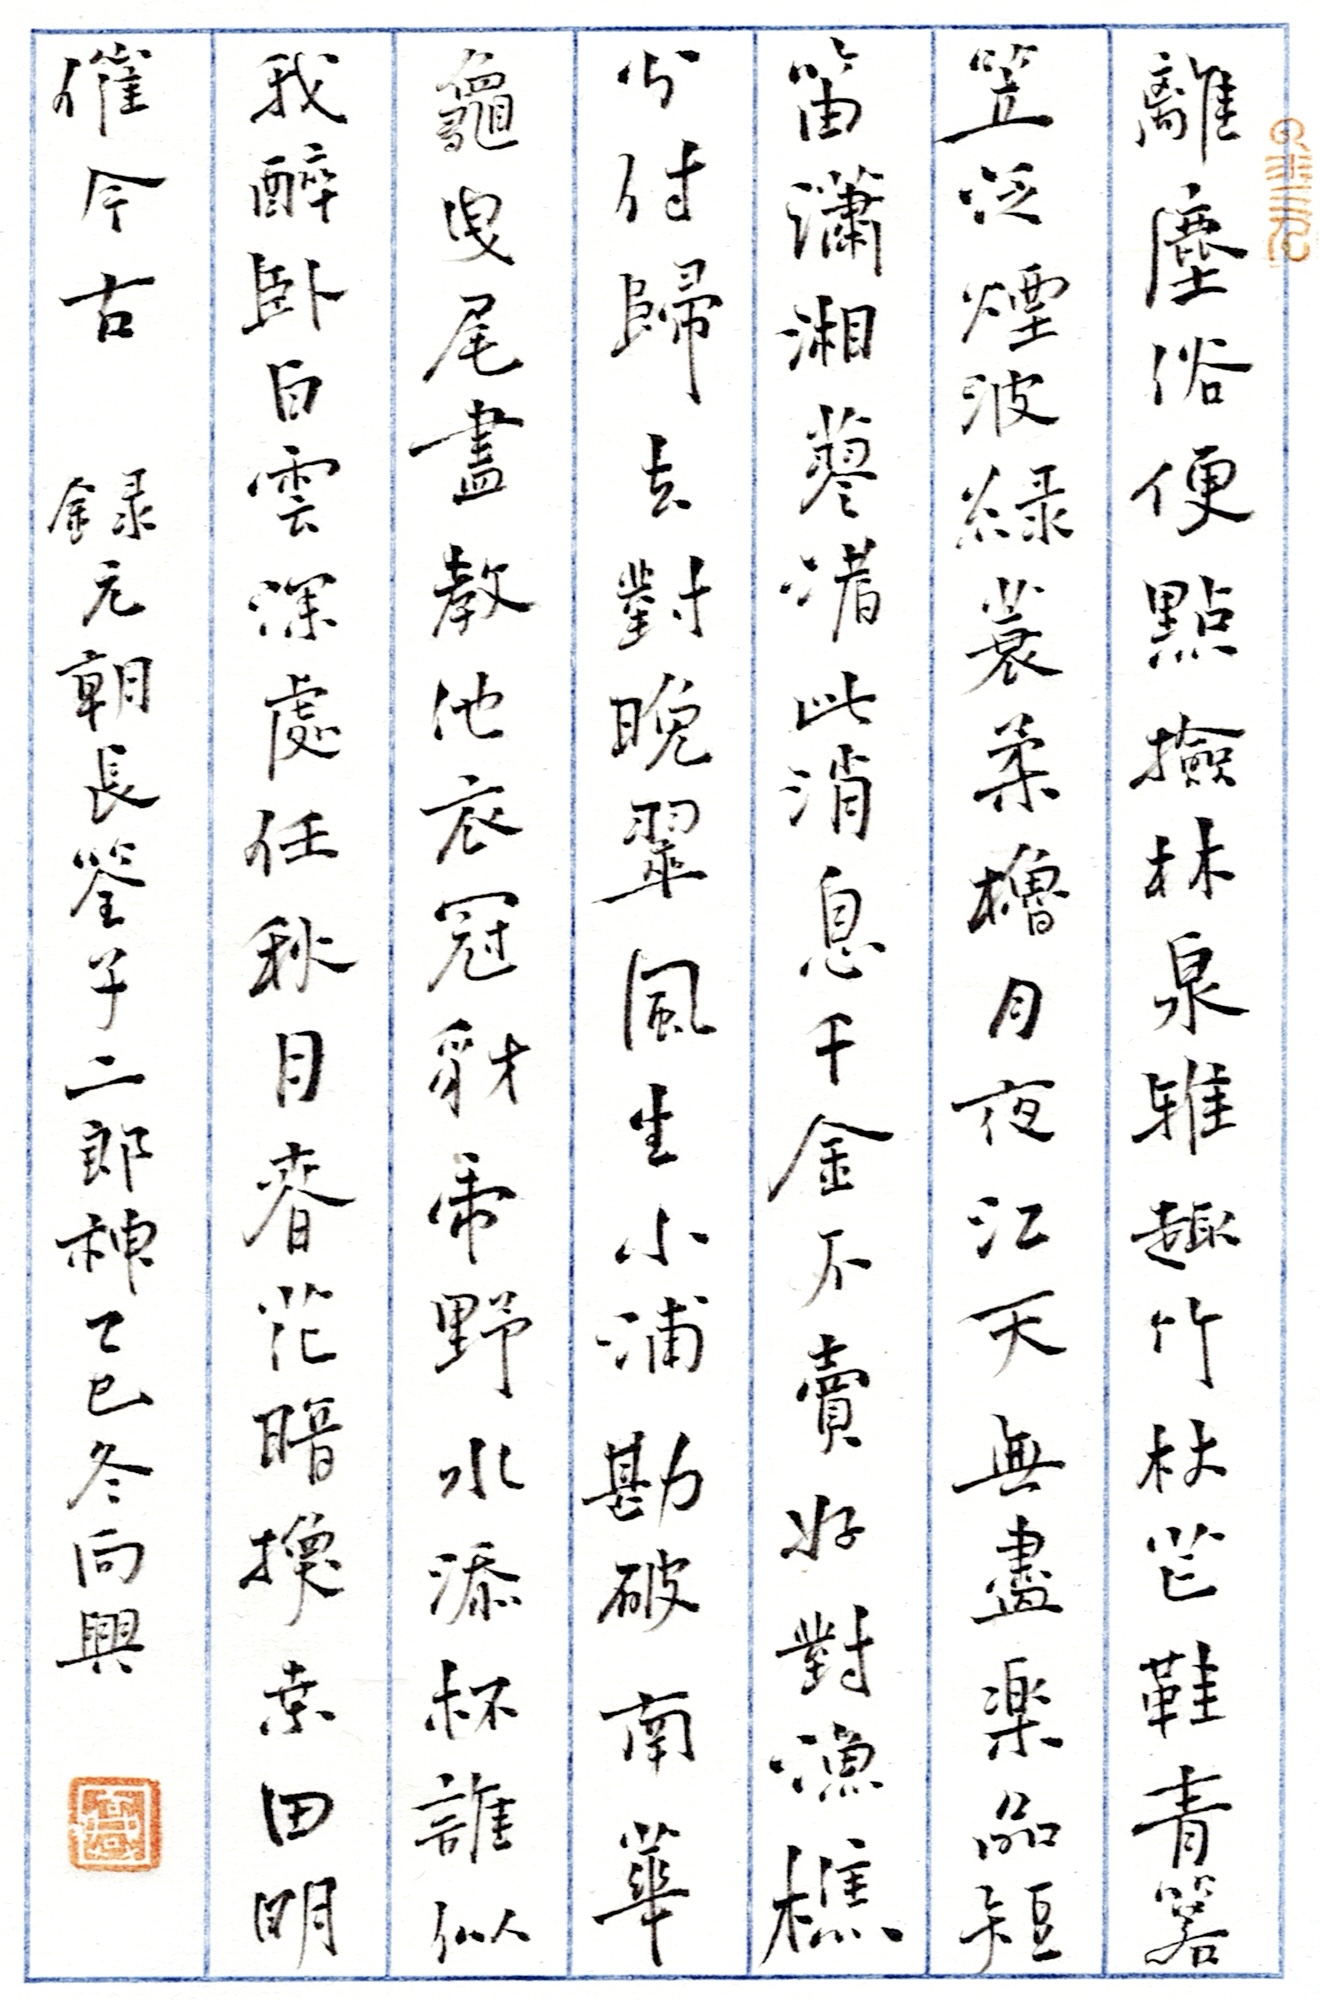 離塵俗便點撿林泉雅趣竹杖芒鞋青箬
笠泛煙波綠蓑柔櫓月夜江天無盡樂品短
笛瀟湘蓼渚此消息千金不賣好對漁樵
分付歸去對晚翠風生小浦勘破南華
龜曳尾盡教他衣冠豺虎野水添杯誰似
我醉臥白雲深處任秋月春花暗換桑田明
催今古
錄元朝長筌子二郎神乙巳冬向興